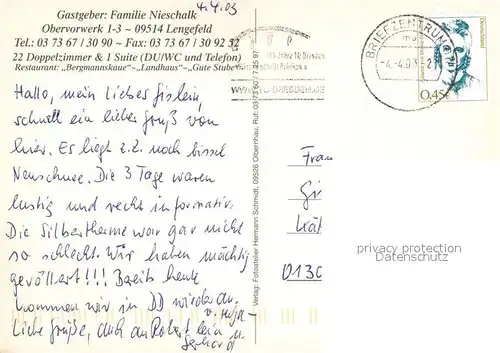 4.4.03
Gastgeber: Familie Nieschalk
Obervorwerk 1-3 ~ 09514 Lengefeld
Tel.: 03 73 67 / 30 90 ~ Fax: 03 73 67 / 30 92 52
22 Doppelzimmer & 1 Suite (DU/WC und Telefon)
Restaurant: „Bergmannskaue" ~ „Landhaus" ~ „Gute Stube"
Hallo, mein liebes
schnell ein lieber Gruß von
hier. Es liegt z.Z. noch bissel
Neuschnee. Die 3 Tage waren
lustig und recht informativ.
Die Silbertherme war gar nicht
so schlecht. Wir haben mächtig
gevöllert!!! Bereits heute
kommen wir in DD wieder an.
Liebe Grüße, auch an Robert
Gerhard
Verlag: Fotoatelier Hermann Schmidt, 09526 Olbernhau, Ruf: 03 73 60 / 7 25 97
BRIEFZENTRUM
-4.-4.03-2
Deutschland
0,45€
Frau
Gi
Kät
013
privacy protection
Datenschutz